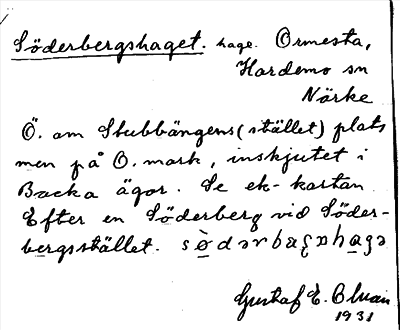 Söderbergshaget. hage. Ormesta,
Hardemo sn
Närke
Ö. om Stubbängens (stället) plats
men på O. mark, inskjutet i
Backa ägor. Se ek-kartan
Efter en Söderberg vid Söder-
bergsstället.
Gustaf E. Bluan
1931